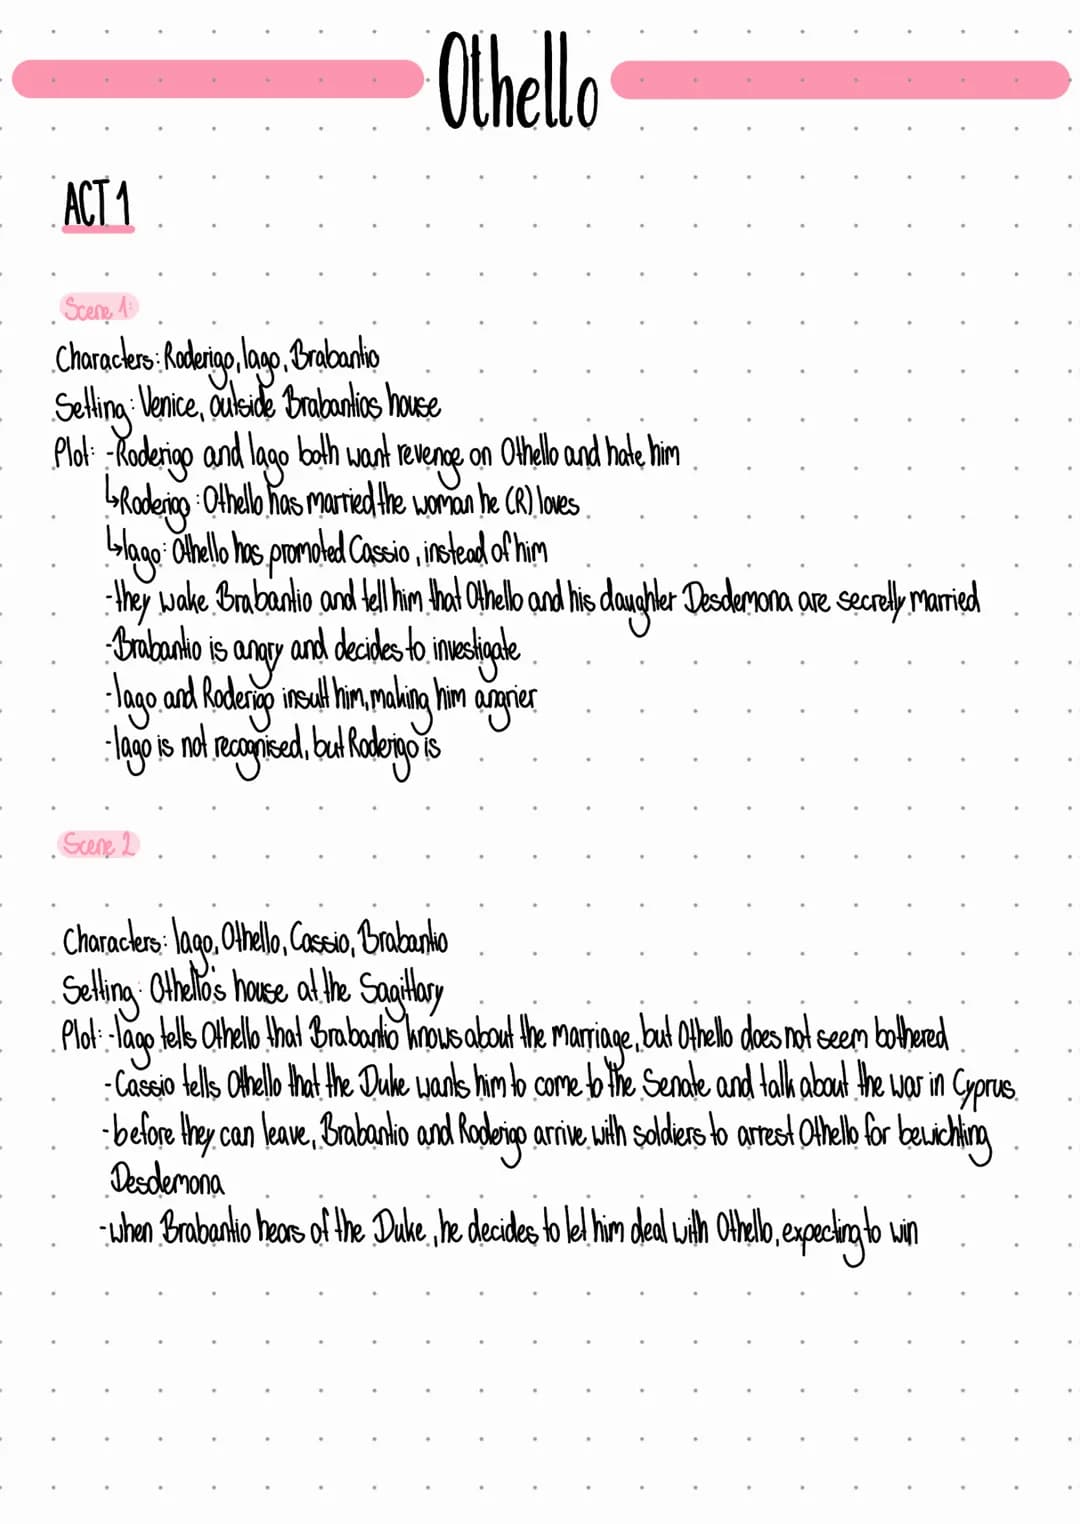 Othello
ACT 1
Scene 1:
Characters: Roderigo, Iago, Brabantio
Setting: Venice, outside Brabantios house
Plot: -Roderigo and Iago both want revenge on Othello and hate him
↳Roderigo: Othello has married the woman he (R) loves
↳Iago: Othello has promoted Cassio, instead of him
-they wake Brabantio and tell him that Othello and his daughter Desdemona are secretly married
-Brabantio is angry and decides to investigate
-Iago and Roderigo insult him, making him angrier
-Iago is not recognised, but Roderigo is
Scene 2
Characters: Iago, Othello, Cassio, Brabantio
Setting: Othello's house at the Sagittary
Plot: -Iago tells Othello that Brabantio knows about the marriage, but Othello does not seem bothered
-Cassio tells Othello that the Duke wants him to come to the Senate and talk about the war in Cyprus
-before they can leave, Brabantio and Roderigo arrive with soldiers to arrest Othello for bewichting
Desdemona
-when Brabantio hears of the Duke, he decides to let him deal with Othello, expecting to win